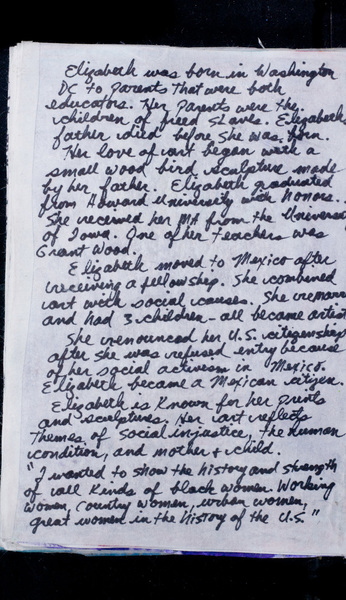 Elizabeth was born in Washington
DC to parents that were both
educators. Her parents were the
children of freed slaves. Elizabeth
father died before she was born.
Her love of art began with a
small wood bird sculpture made
by her father. Elizabeth graduated
from Howard University with honors.
She received her MA from the Univers
of Iowa. One of her teachers was
Grant Wood.
Elizabeth moved to Mexico after
receiving a fellowship. She combined
art with social causes. She remarr
and had 3 children - all became artist
She renounced her U.S. citizenship
after she was refused entry because
of her social activism in Mexico.
Elizabeth became a Mexican citizen.
Elizabeth is known for her prints
and sculptures. Her art reflects
themes of social injustice, the human
condition, and mother & child.
"I wanted to show the history and strength
of all kinds of black women. Working
women, country women, urban women,
great women in the history of the U.S."